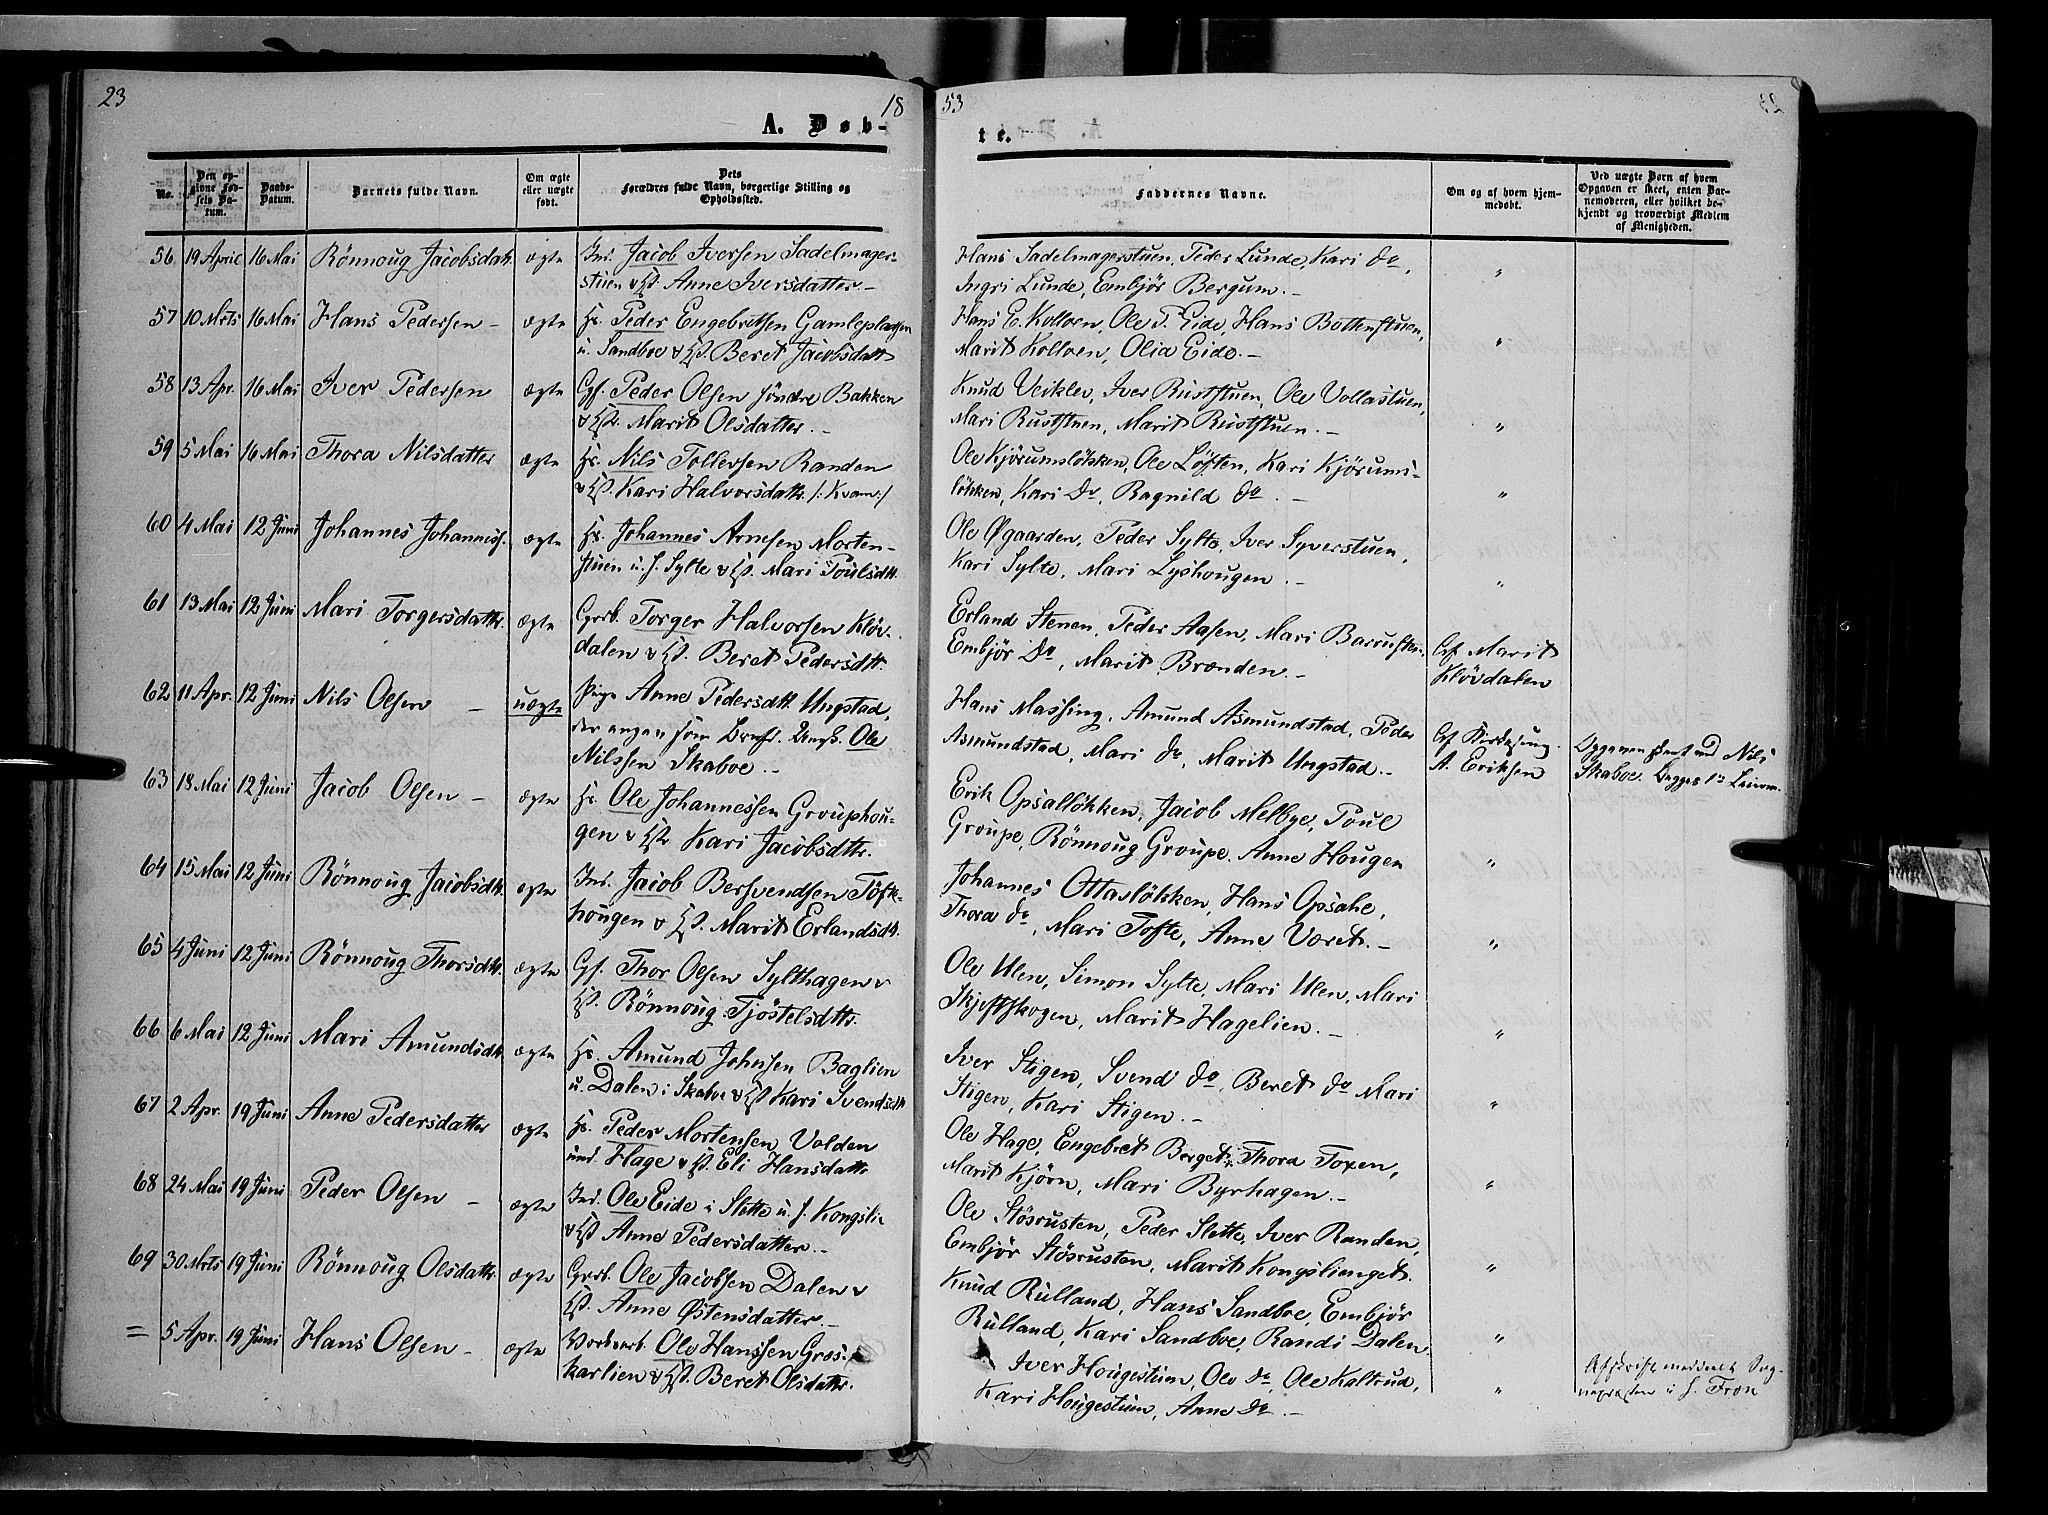 23
18
53
A. Døb-
te.
No.
Den opgivne Fødsels Datum.
Daabs-Datum.
Barnets fulde Navn.
Om ægte eller uægte født.
Dets Forældres fulde Navn, borgerlige Stilling og Opholdssted.
Faddernes Navne.
Om og af hvem hjemmedøbt.
Ved uægte Børn af hvem Opgaven er skeet, enten Barnemoderen, eller hvilket bekjendt og troværdigt Medlem af Menigheden.
56 19 April 16 Mai Rönnoug Jacobsdatt. ægte Ind. Jacob Iversen Sadelmager-
stuen & Anne Iversdatter.-
Hans Sadelmagerstuen, Peder Lunde, Kari do,
Ingri Lunde, Embjör Bergum.- "
57 10 Mrts 16 Mai Hans Pedersen - ægte Hs. Peder Engebretsen Gamlepladsen
u. Sandboe & Beret Jacobsdatt
Hans E. Kolloen, Ole T. Eide, Hans Bottenstuen,
Marit Kolloen, Olia Eide.- "
58 13 Apr. 16 Mai Iver Pedersen ægte Gf. Peder Olsen söndre Bakken
& Marit Olsdatter.-
Knud Veiklev, Iver Ruststuen, Ole Vollastuen,
Mari Ruststuen, Marit Ruststuen.- "
59 5 Mai 16 Mai Thora Nilsdatter ægte Hs. Nils Tollevsen Randen
& Kari Halvorsdatt. /: Kvam :/
Ole Kjörumslökken, Ole Löften, Kari Kjörums-
lökken, Kari do, Ragnild do.- "
60 4 Mai 12 Juni Johannes Johanness. ægte Hs. Johannes Arnesen Morten-
stuen u. s. Sylte & Mari Poulsdtt.
Ole Øgaarden, Peder Sylte, Iver Syverstuen,
Kari Sylte, Mari Lyshougen.- "
61 13 Mai 12 Juni Mari Torgersdattr. ægte Grb. Torger Halvorsen Klöv-
dalen & Beret Pedersdtt.
Erland Stenen, Peder Aasen, Mari
Embjör Do, Marit Brænden.-
Marit
Klövdalen
62 11 Apr. 12 Juni Nils Olsen - uægte Pige Anne Pedersdtt. Ungstad,
der angav som Barnf. Ungk. Ole
Nilssen Skaboe.-
Hans Massing, Amund Asmundstad, Peder
Asmundstad, Mari do, Marit Ungstad.-
Kirkesang.
A. Eriksen
Opgaven skeet ved Nils
Skaboe. Begges 1ste Leierm.
63 18 Mai 12 Juni Jacob Olsen - ægte Hs. Ole Johannessen Grouphou-
gen & Kari Jacobsdttr.
Erik Opsallökken, Jacob Melbye, Poul
Groupe, Rönnoug Groupe, Anne Hougen "
64 15 Mai 12 Juni Rönnoug Jacobsdtt. ægte Ind. Jacob Bersvendsen Tofte-
hougen & Marit Erlandsdtt.
Johannes Ottaslökken, Hans Opsahe,
Thora do, Mari Tofte, Anne Voret.- "
65 4 Juni 12 Juni Rönnoug Thorsdtt. ægte Gf. Thor Olsen Sylthagen &
Rönnoug Tjöstelsdttr.
Ole Ulen, Simon Sylte, Mari Ulen, Mari
Skjeftskogen, Marit Hagelien.- "
66 6 Mai 12 Juni Mari Amundsdtt. ægte Hs. Amund Johnsen Baglien
u. Dalen i Skaboe & Kari Svendsdtt
Iver Stigen, Svend do, Beret do Mari
Stigen, Kari Stigen.- "
67 2 Apr. 19 Juni Anne Pedersdatter ægte Hs. Peder Mortensen Volden
und. Hage & Eli Hansdatt.
Ole Hage, Engebret Berget, Thora Toxen,
Marit Kjörn, Mari Byrhagen.- "
68 24 Mai 19 Juni Peder Olsen - ægte Ind. Ole Eide i Slette u. s. Kongsli
& Anne Pedersdatter.-
Ole Stösrusten, Peder Slette, Iver Randen,
Embjör Stösrusten, Marit Kongslienget. "
69 30 Mrts 19 Juni Rönnoug Olsdatt. ægte Grb. Ole Jacobsen Dalen &
Anne Østensdatter.-
Knud Rulland, Hans Sandboe, Embjör
Rulland, Kari Sandboe, Randi Dalen. "
= 5 Apr. 19 Juni Hans Olsen - ægte Ole Hanssen Gros-
karlien & Beret Olsdatter.
Iver Hougestuen, Ole do, Ole Kaltrud,
Kari Hougestuen, Anne Do.- "
Afskrift meddeelt Sog-
nepræsten i s. Fron